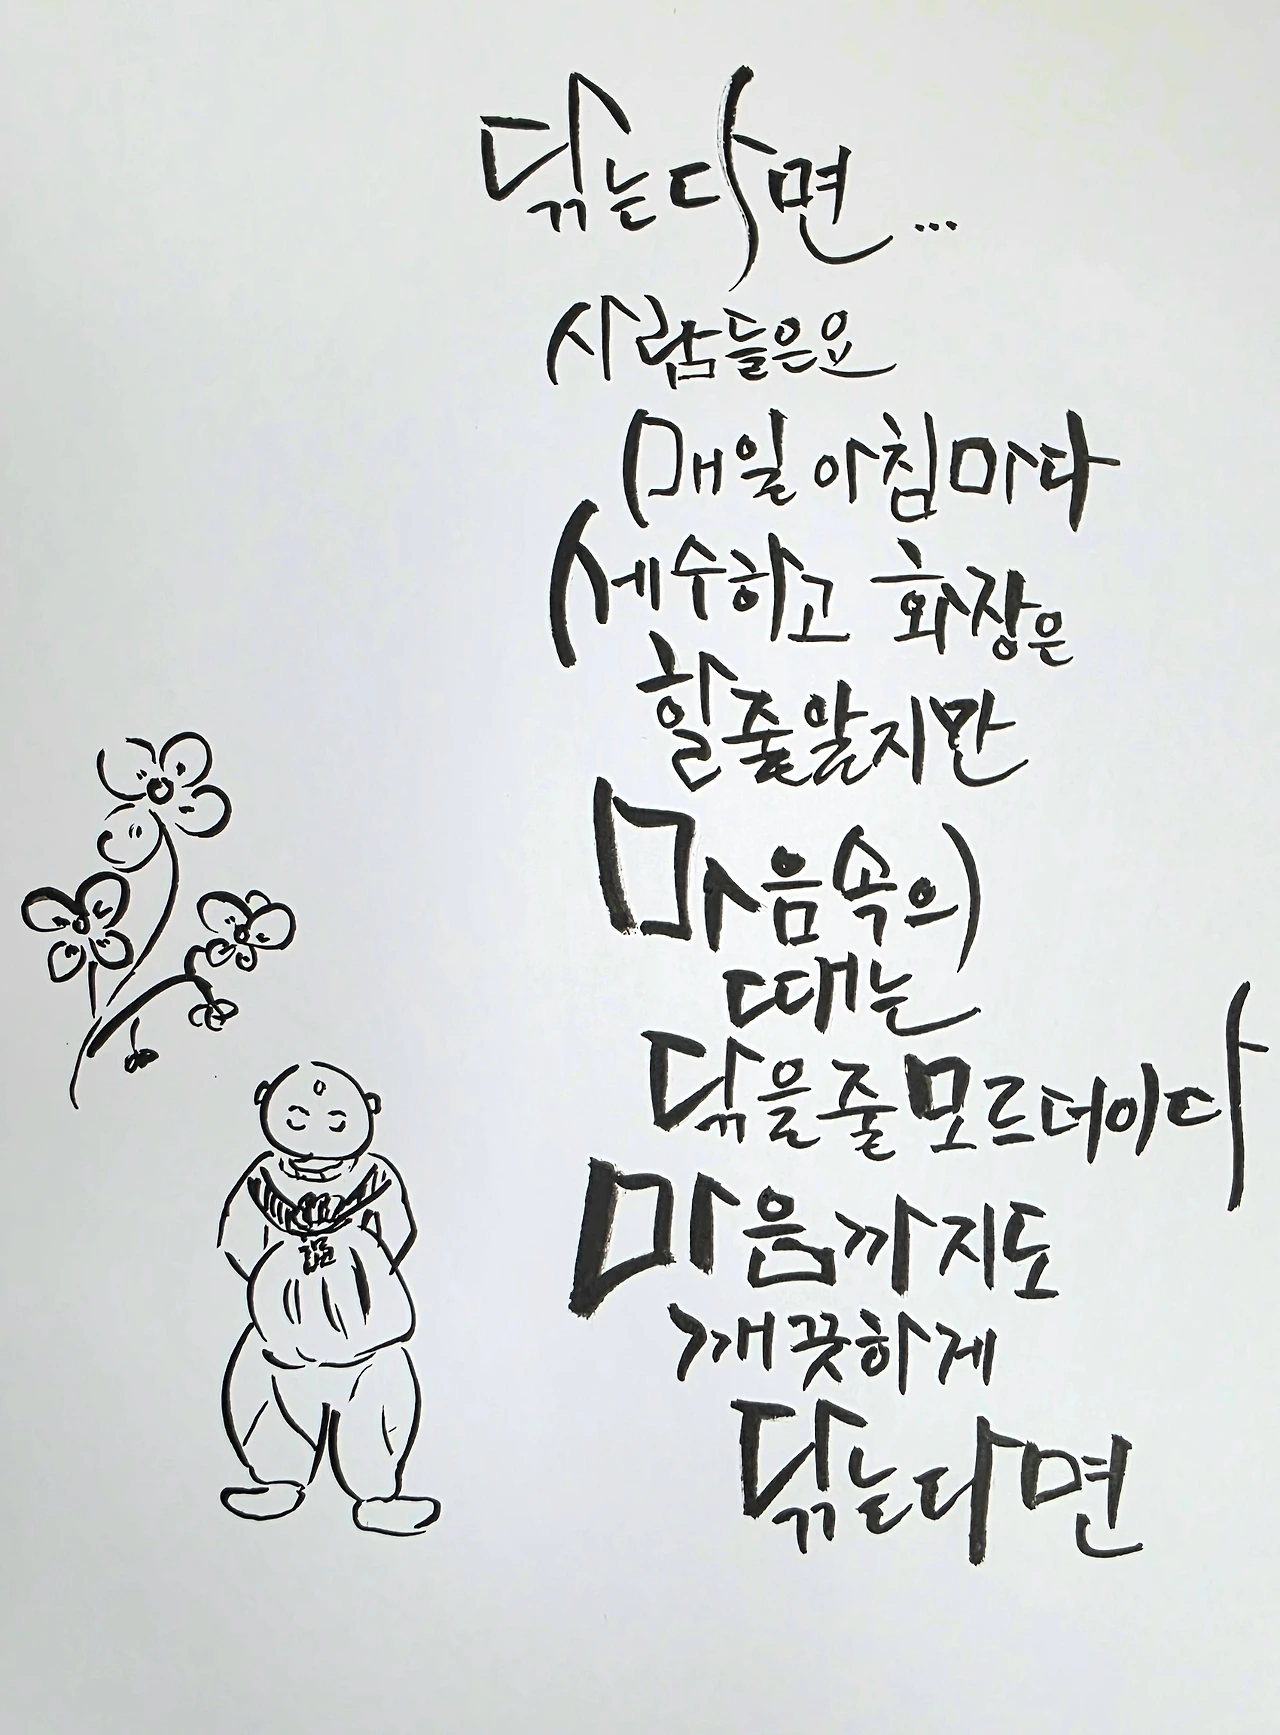 닦는다면...
사람들은요
매일 아침마다
세수하고 화장은
할줄알지만
마음속의
때는
닦을줄모르더이다
마음까지도
깨끗하게
닦는다면